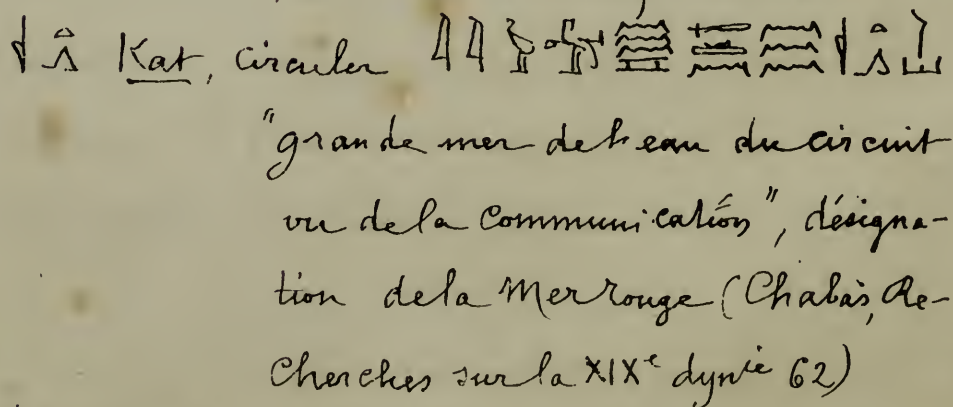 Kat, circuler
"grande mer de l'eau du circuit
ou de la communication", désigna-
tion de la Mer rouge (Chabas, Re-
cherches sur la XIXe dynie 62)